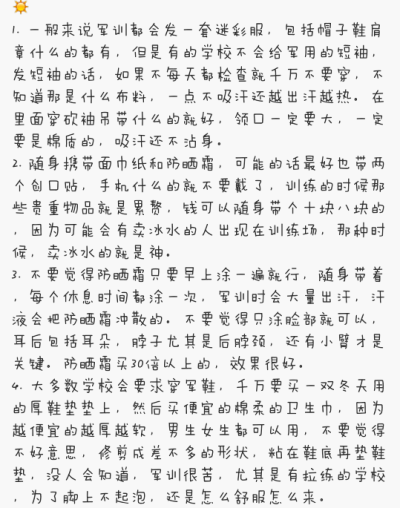 1. 一般来说军训都会发一套迷彩服，包括帽子鞋肩
章什么的都有，但是有的学校不会给军用的短袖，
发短袖的话，如果不每天都检查就千万不要穿，不
知道那是什么布料，一点不吸汗还越出汗越热。在
里面穿砍袖吊带什么的就好，领口一定要大，一定
要是棉质的，吸汗还不沾身。
2. 随身携带面巾纸和防晒霜，可能的话最好也带两
个创口贴，手机什么的就不要戴了，训练的时候那
些贵重物品就是累赘，钱可以随身带个十块八块的
，因为可能会有卖冰水的人出现在训练场，那种时
候，卖冰水的就是神。
3. 不要觉得防晒霜只要早上涂一遍就行，随身带着
，每个休息时间都涂一次，军训时会大量出汗，汗
液会把防晒霜冲散的。不要觉得只涂脸部就可以，
耳后包括耳朵，脖子尤其是后脖颈，还有小臂才是
关键。防晒霜买30倍以上的，效果很好。
4. 大多数学校会要求穿军鞋，千万要买一双冬天用
的厚鞋垫垫上，然后买便宜的绵柔的卫生巾，因为
越便宜的越厚越软，男生女生都可以用，不要觉得
不好意思，修剪成差不多的形状，粘在鞋底再垫鞋
垫，没人会知道，军训很苦，尤其是有拉练的学校
，为了脚上不起泡，还是怎么舒服怎么来。